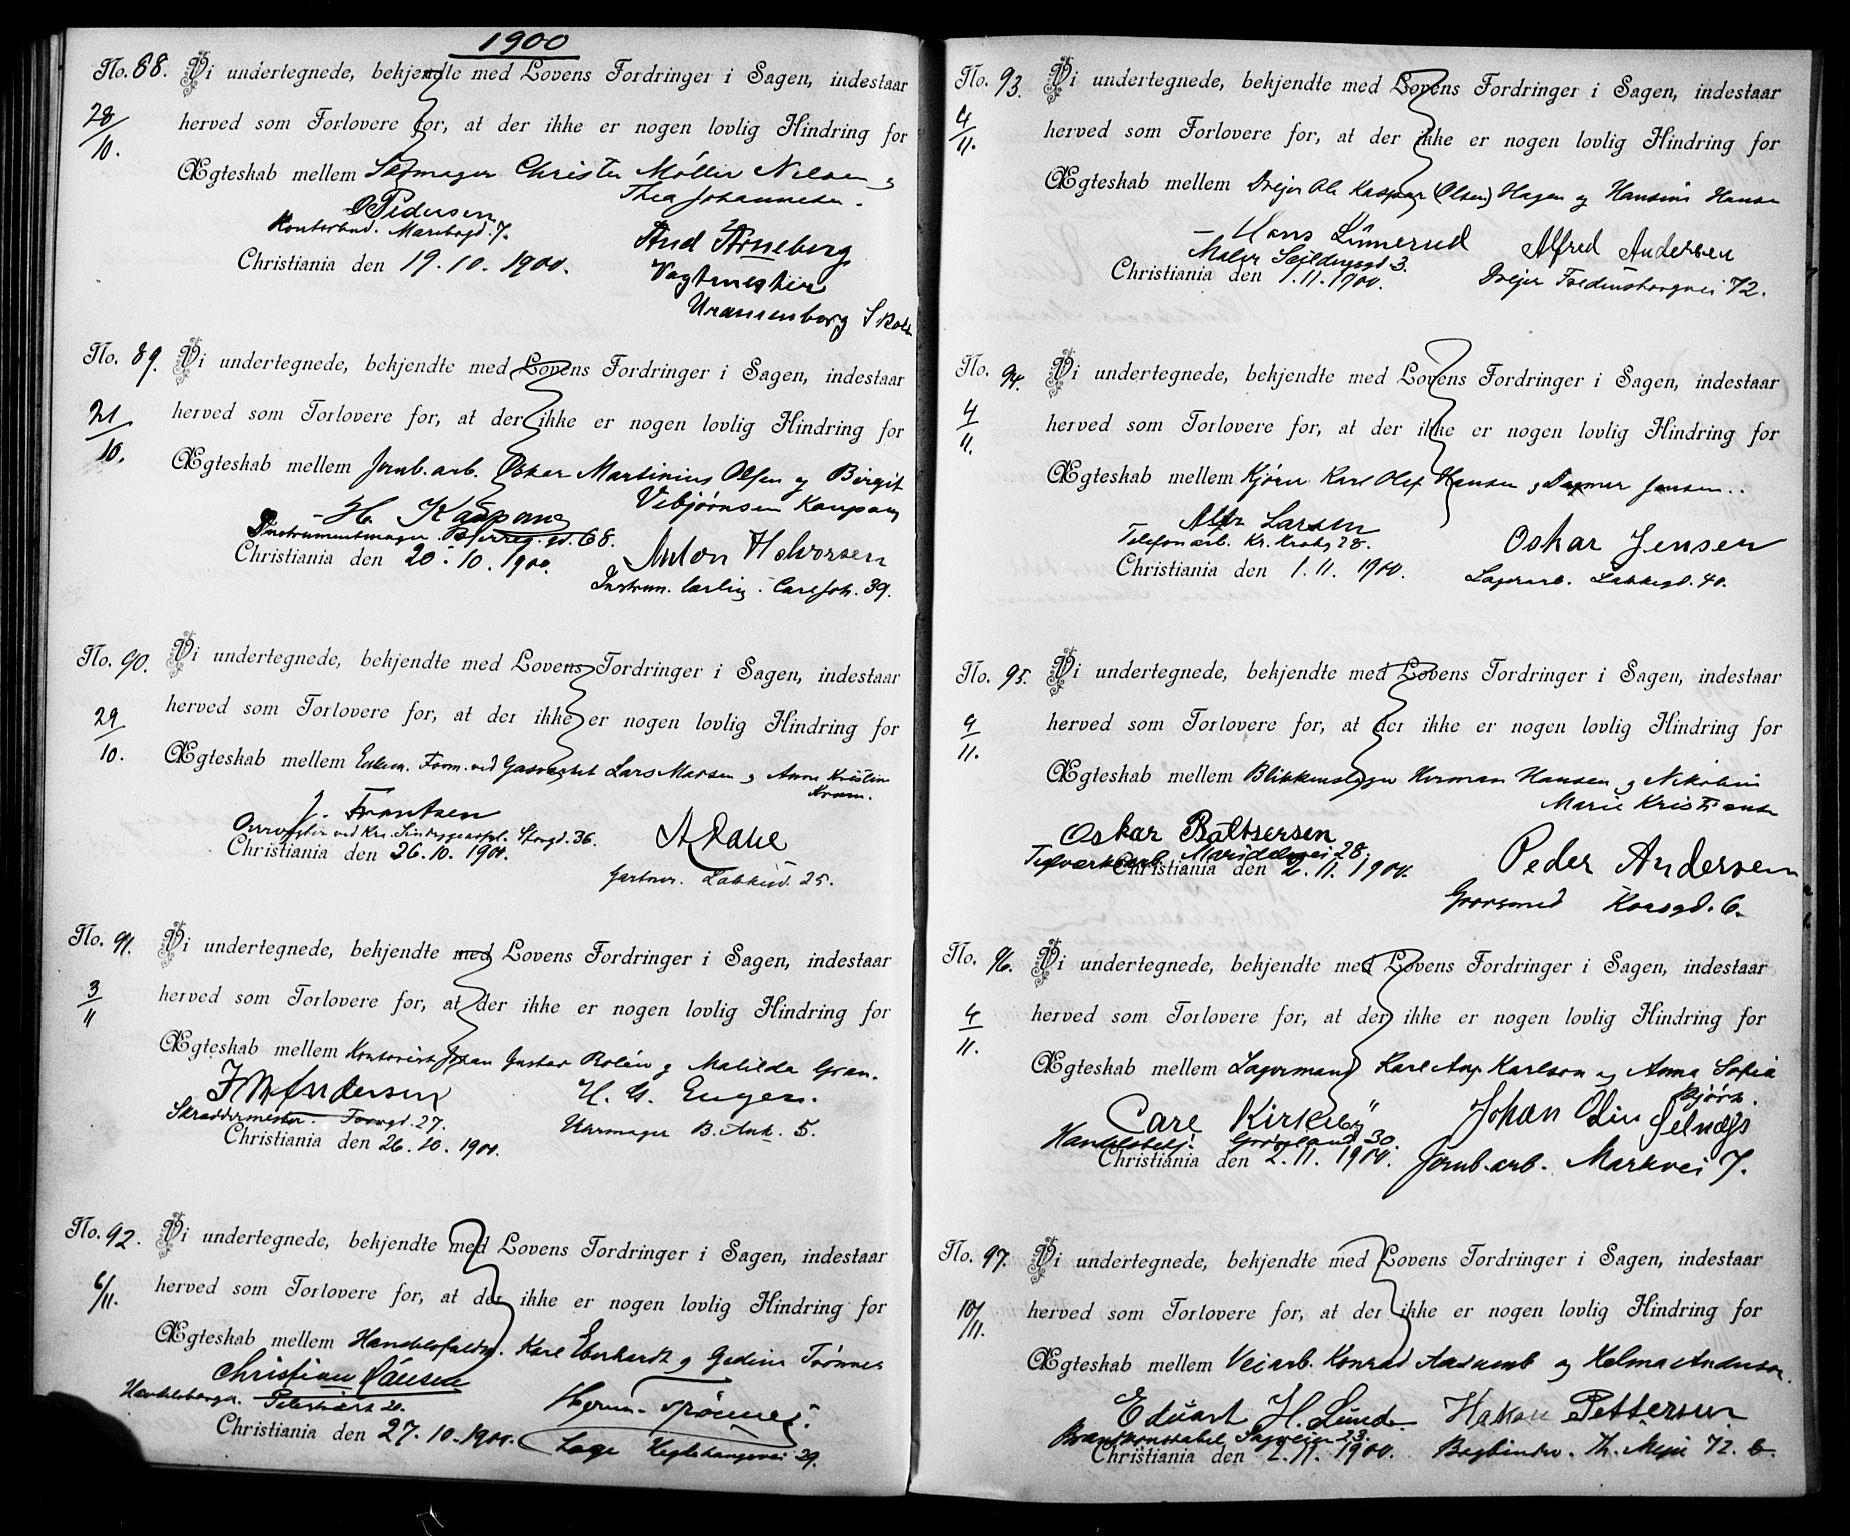 1900
No. 88. Vi undertegnede, bekjendte med Lovens Fordringer i Sagen, indestaar
28/10. herved som Forlovere for, at der ikke er nogen lovlig Hindring for
Ægteskab mellem Skomager Christen Møller Nilsen og
Thea Johannesen.
O Pedersen
Kontorbud. Maribogd. 7.
And Arneberg
Christiania den 19. 10. 1900.
Vagtmester
Uranienborg Skole
No. 89. Vi undertegnede, bekjendte med Lovens Fordringer i Sagen, indestaar
21/10. herved som Forlovere for, at der ikke er nogen lovlig Hindring for
Ægteskab mellem Jernb. arb. Oskar Martinius Olsen og Birgit
Vebjørnsen Kaupang
H. Kaupang
Instrumentmager. Bjerreg. gd. 68.
Anton Halvorsen
Christiania den 20. 10. 1900.
Instrum. Carl Joh. 39.
No. 90. Vi undertegnede, bekjendte med Lovens Fordringer i Sagen, indestaar
29/10. herved som Forlovere for, at der ikke er nogen lovlig Hindring for
Ægteskab mellem Enkem. Form. ved Gasverket Lars Larsen og Anne Kristin
Kram.
J. Frantsen
Storgd. 36.
A Dahl
Christiania den 26. 10. 1900.
Gartner. Lakkegd. 25.
No. 91. Vi undertegnede, bekjendte med Lovens Fordringer i Sagen, indestaar
3/11 herved som Forlovere for, at der ikke er nogen lovlig Hindring for
Ægteskab mellem Kontorist Johan Gustav Rolén og Matilda Gran.
Andersen
H. G. Engen.
Skræddermester. Torvgd. 27.
Urmager B. Ank. 5.
Christiania den 26. 10. 1900.
No. 92. Vi undertegnede, bekjendte med Lovens Fordringer i Sagen, indestaar
6/11. herved som Forlovere for, at der ikke er nogen lovlig Hindring for
Ægteskab mellem Handelsfuldm. Karl Eberhardt og Gedine Trønnes
Christian Hansen
Herm. Trønnes.
Christiania den 27. 10. 1900.
29.
No. 93. Vi undertegnede, bekjendte med Lovens Fordringer i Sagen, indestaar
4/11. herved som Forlovere for, at der ikke er nogen lovlig Hindring for
Ægteskab mellem Dreier Ole Kaspar (Olsen) Hagen og Hansine Hansen
Hans Linnerud
Maler Seildugsgd. 3.
Alfred Andersen
Christiania den 1. 11. 1900.
Dreier Fredensborgvei 72.
No. 94. Vi undertegnede, bekjendte med Lovens Fordringer i Sagen, indestaar
4/11. herved som Forlovere for, at der ikke er nogen lovlig Hindring for
Ægteskab mellem Kjører Karl Olaf Hansen og Dagmar Jensen.
Alfr Larsen
Telefonarb. Kr. Krohg 28.
Oskar Jensen
Christiania den 1. 11. 1900.
Lagerarb. Lakkegd. 40.
No. 95. Vi undertegnede, bekjendte med Lovens Fordringer i Sagen, indestaar
9/11. herved som Forlovere for, at der ikke er nogen lovlig Hindring for
Ægteskab mellem Blikkenslager Herman Hansen og Nikoline
Marie Kristiansen
Oskar Baltsersen
Teglverksarb. Maridalsvei 28.
Peder Andersen
Christiania den 2. 11. 1900.
Grovsmed Korsgd. 6.
No. 96. Vi undertegnede, bekjendte med Lovens Fordringer i Sagen, indestaar
4/11. herved som Forlovere for, at der ikke er nogen lovlig Hindring for
Ægteskab mellem Lagermand Karl Aug. Karlson og Anna Sofia
Bjørk.
Carl Kirkeby
Handelsbetj. Grønland 30.
Johan Odin Selnæs
Christiania den 2. 11. 1900.
Jernb. arb. Markvei 7.
No. 97. Vi undertegnede, bekjendte med Lovens Fordringer i Sagen, indestaar
10/11. herved som Forlovere for, at der ikke er nogen lovlig Hindring for
Ægteskab mellem Veiarb. Konrad Aasum og Helma Anderson.
Eduart H. Lund
Brandkonstabel Sagveien 23.
Hakon Pettersen
Christiania den 2. 11. 1900.
Bogbinder. Th. Meyer 72. b.